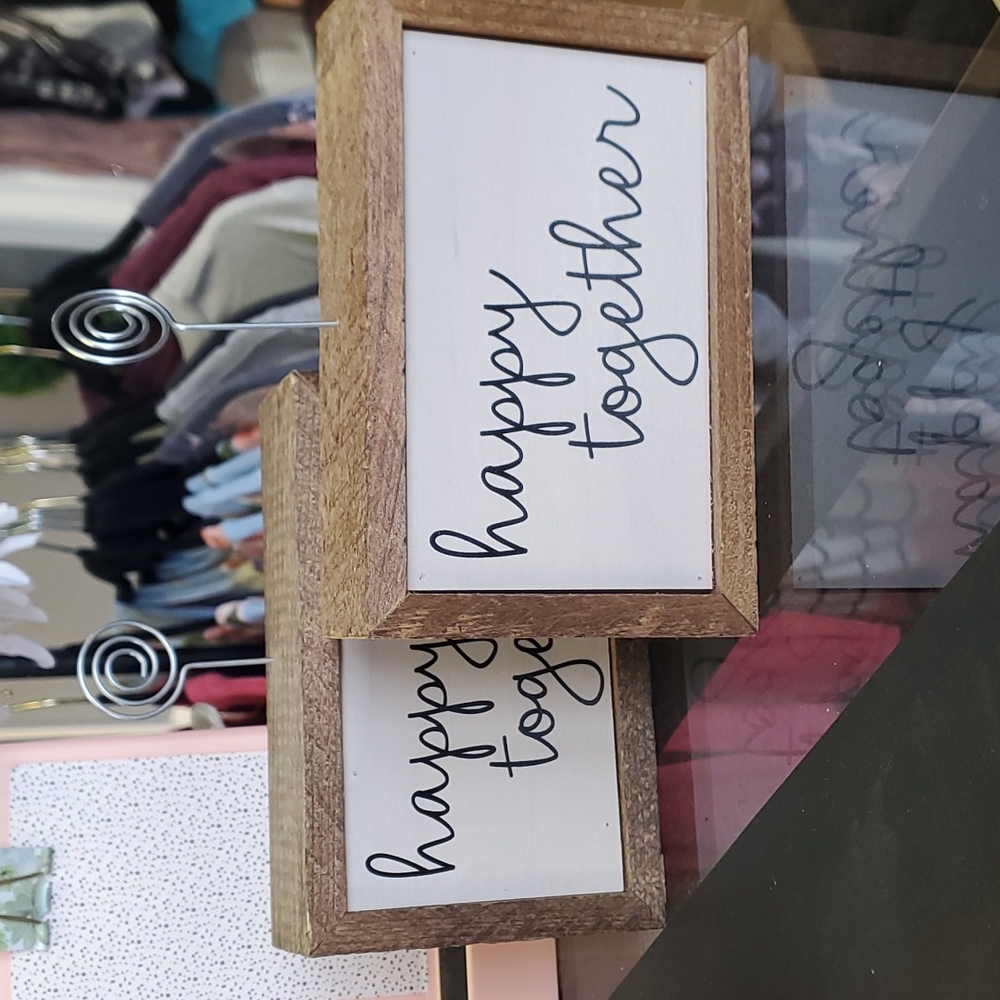 happy
together
happy
toge